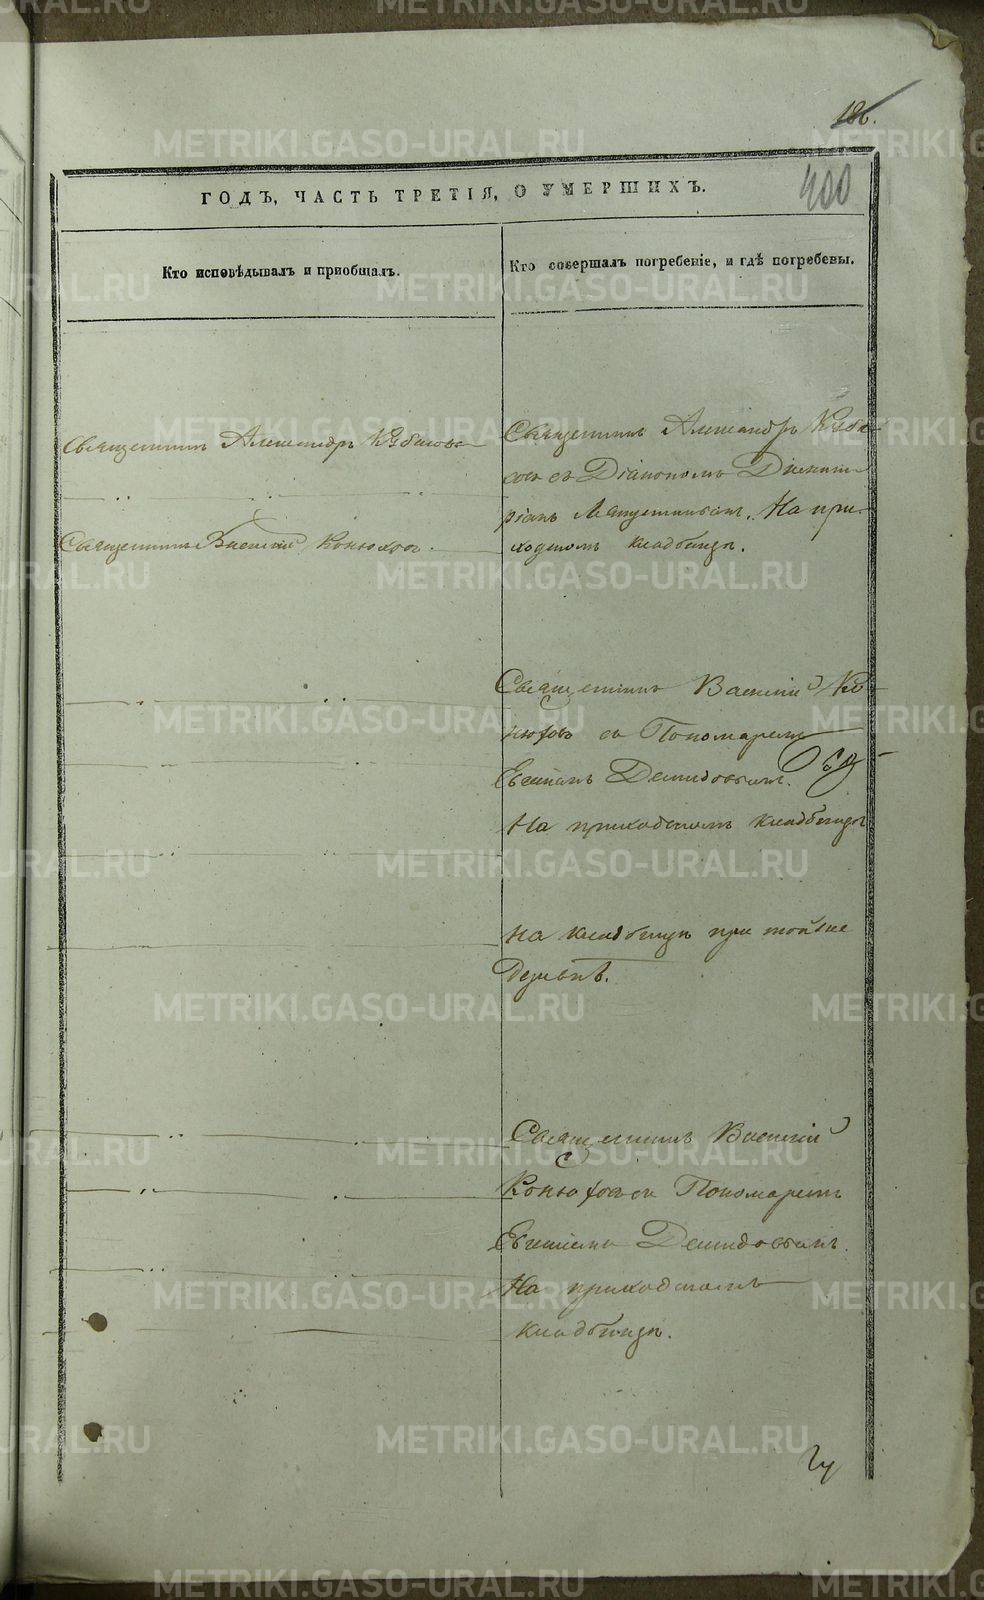 186.
400
ГОДЪ, ЧАСТЬ ТРЕТІЯ, О УМЕРШИХЪ.
Кто исповѣдывалъ и приобщалъ.
Кто совершалъ погребеніе, и гдѣ погребены.
Священникъ Александръ
Священникъ Василій Конюховъ.
Священникъ Александръ
съ Діакономъ
На при-
ходскомъ кладбищѣ.
Священникъ Василій Ко-
нюховъ съ Пономаремъ
Демидовымъ.
На приходскомъ кладбищѣ
на кладбищѣ при той же
Деревнѣ.
Священникъ Василій
Конюховъ съ Пономаремъ
Демидовымъ.
На приходскомъ
кладбищѣ.
METRIKI.GASO-URAL.RU